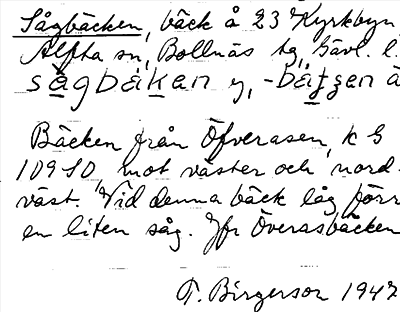 Sågbäcken, bäck å 23 Kyrkbyn
Alfta sn, Bollnäs tg, Gävl. l.
sågbäkən y, -bätʒen å
Bäcken från Öfveråsen, k G
10950, mot väster och nord-
väst. Vid denna bäck låg förr
en liten såg. Jfr Överåsbäcken
T. Birgerson 1947